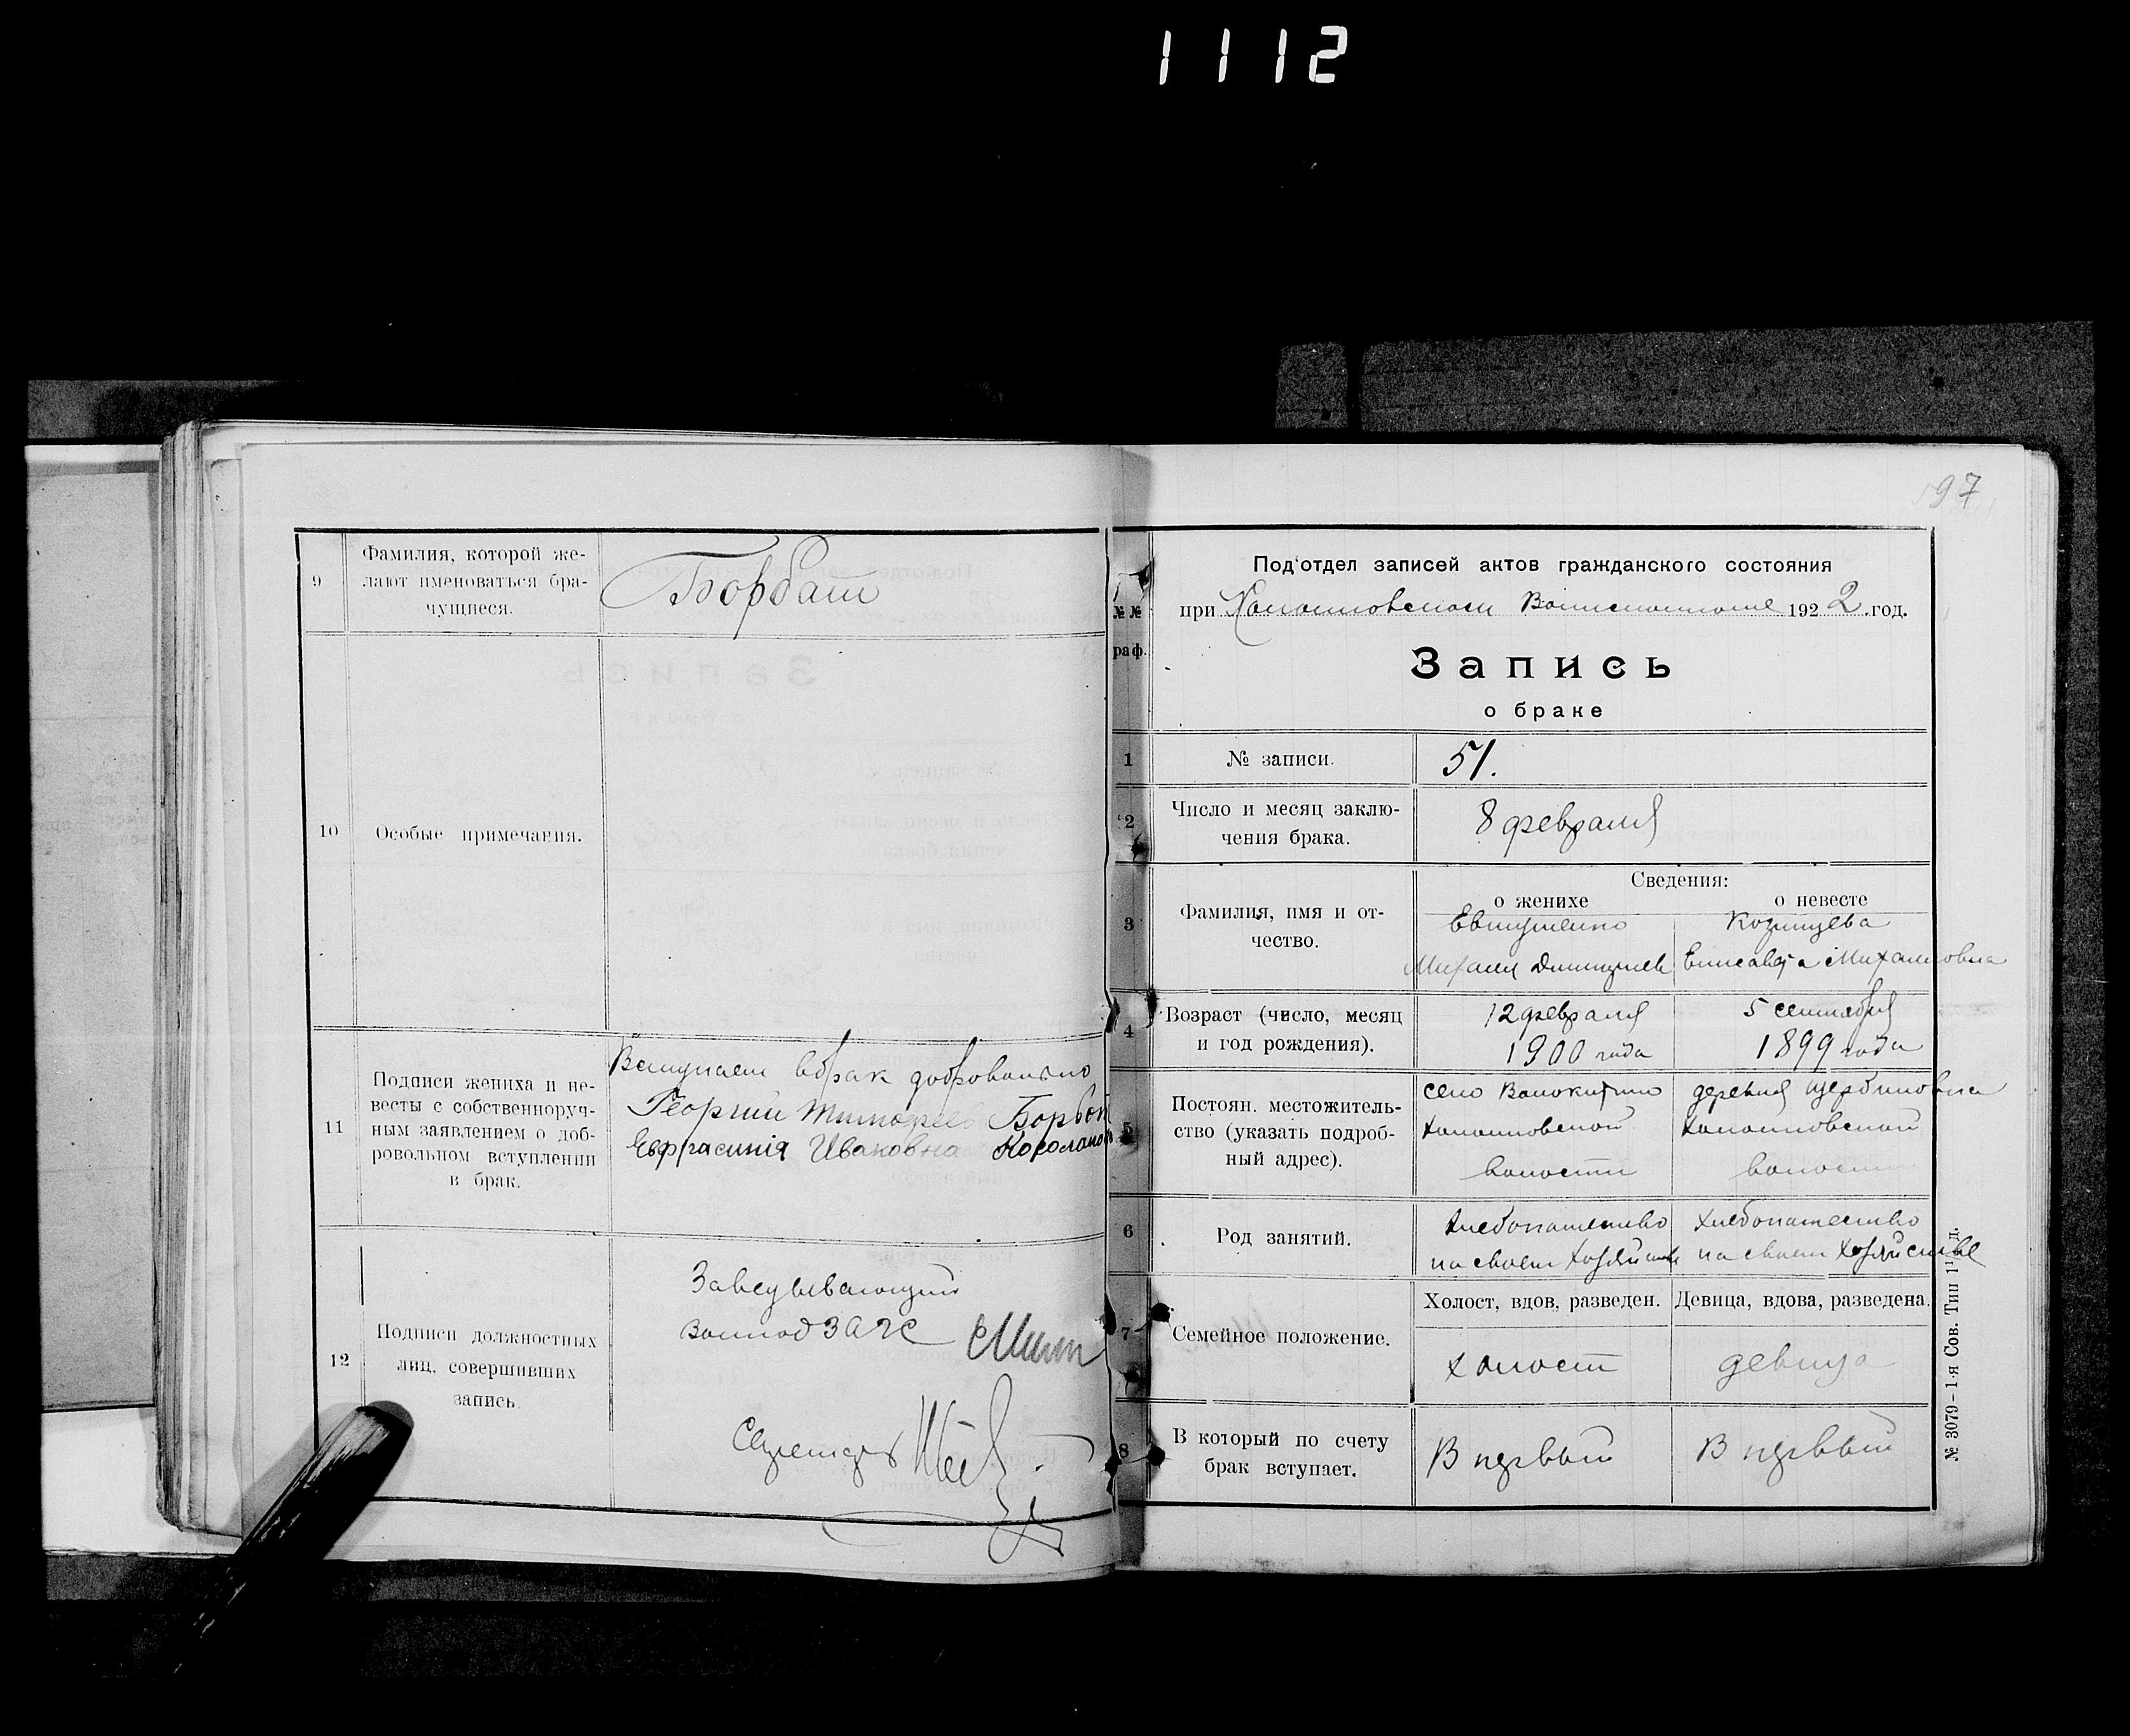 1112
9
Фамилия, которой же-
лают именоваться бра-
чущиеся.
Борбат
10
Особые примечания.
11
Подписи жениха и не-
весты с собственноруч-
ным заявлением о доб-
ровольном вступлении
в брак.
Вступаем вбрак добровольно
Георгий Тимофеев
Евфрасинія Ивановна
12
Подписи должностных
лиц, совершивших
запись.
Заведывающий
ЗАГС
Секретарь
97
№№
раф.
Под'отдел записей актов гражданского состояния
при 1922 год.
Запись
о браке
1
№ записи.
51.
2
Число и месяц заклю-
чения брака.
8 февраля
3
Фамилия, имя и от-
чество.
Сведения:
о женихе
о невесте
Евтушенко
Михаил
Козинцева
Елисавета Михаиловна
4
Возраст (число, месяц
и год рождения).
12 февраля
1900 года
5 сентября
1899 года
5
Постоян. местожитель-
ство (указать подроб-
ный адрес).
село Волокитино
волости
деревня Щербиновка
волости
6
Род занятий.
Хлебопашество
на своем хозяйстве
Хлебопашество
на своем хозяйстве
7
Семейное положение.
Холост, вдов, разведен.
Девица, вдова, разведена.
холост
девица
8
В который по счету
брак вступает.
В первый
В первый
№ 3079-1-я Сов. Тип 1 д.